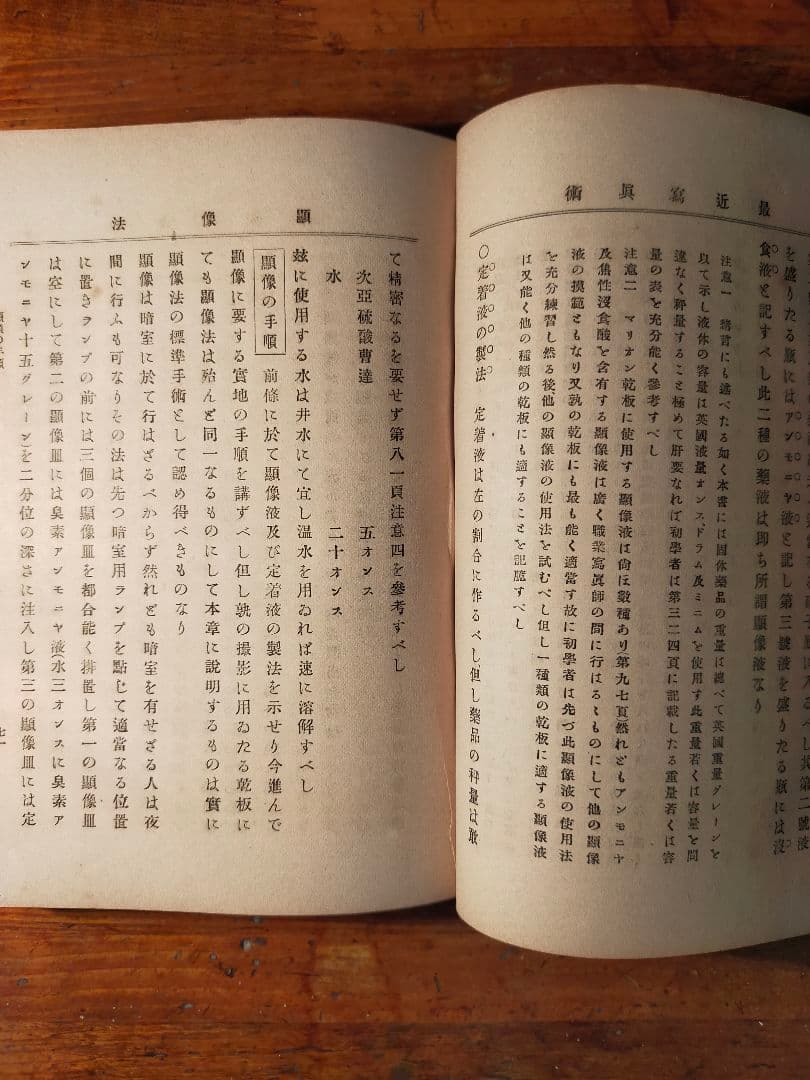 最近寫眞術
を盛りたる瓶にはアンモニヤ液と記し第三號液を盛りたる瓶には沒
食液と記すべし此二種の藥液は即ち所謂顯像液なり
注意一 緖言にも述べたる如く本書には固体藥品の重量は總べて英國重量グレーンを
以て示し液体の容量は英國液量オンス、ドラム及ミニムを使用す此重量若くは容量を間
違なく秤量すること極めて肝要なれば初學者は第三二四頁に記載したる重量若くは容
量の表を充分能く參考すべし
注意二 マリオン乾板に使用する顯像液は尙ほ數種あり(第九七頁)然れどもアンモニヤ
及焦性沒食酸を含有する顯像液は廣く職業寫眞師の間に行はるゝものにして他の顯像
液の摸範ともなり又孰の乾板にも最も能く適當す故に初學者は先づ此顯像液の使用法
を充分練習し然る後、他の顯像液の使用法を試むべし但し一種類の乾板に適する顯像液
は又能く他の種類の乾板にも適することを記臆すべし
○定着液の製法 定着液は左の割合に作るべし但し藥品の秤量は敢
顯像法
て精密なるを要せず第八一頁注意四を參考すべし
次亞硫酸曹達 五オンス
水 二十オンス
玆に使用する水は井水にて宜し温水を用ゐれば速に溶解すべし
顯像の手順 前條に於て顯像液及び定着液の製法を示せり今進んで
顯像に要する實地の手順を講ずべし但し孰の撮影に用ゐたる乾板に
ても顯像法は殆んど同一なるものにして本章に説明するものは實に
顯像法の標準手術として認め得べきものなり
顯像は暗室に於て行はざるべからず然れども暗室を有せざる人は夜
間に行ふも可なりその法は先つ暗室用ランプを點じて適當なる位置
に置きランプの前には三個の顯像皿を都合能く排置し第一の顯像皿
は空にして第二の顯像皿には臭素アンモニヤ液(水三オンスに臭素ア
ンモニヤ十五グレーン)を二分位の深さに注入し第三の顯像皿には定